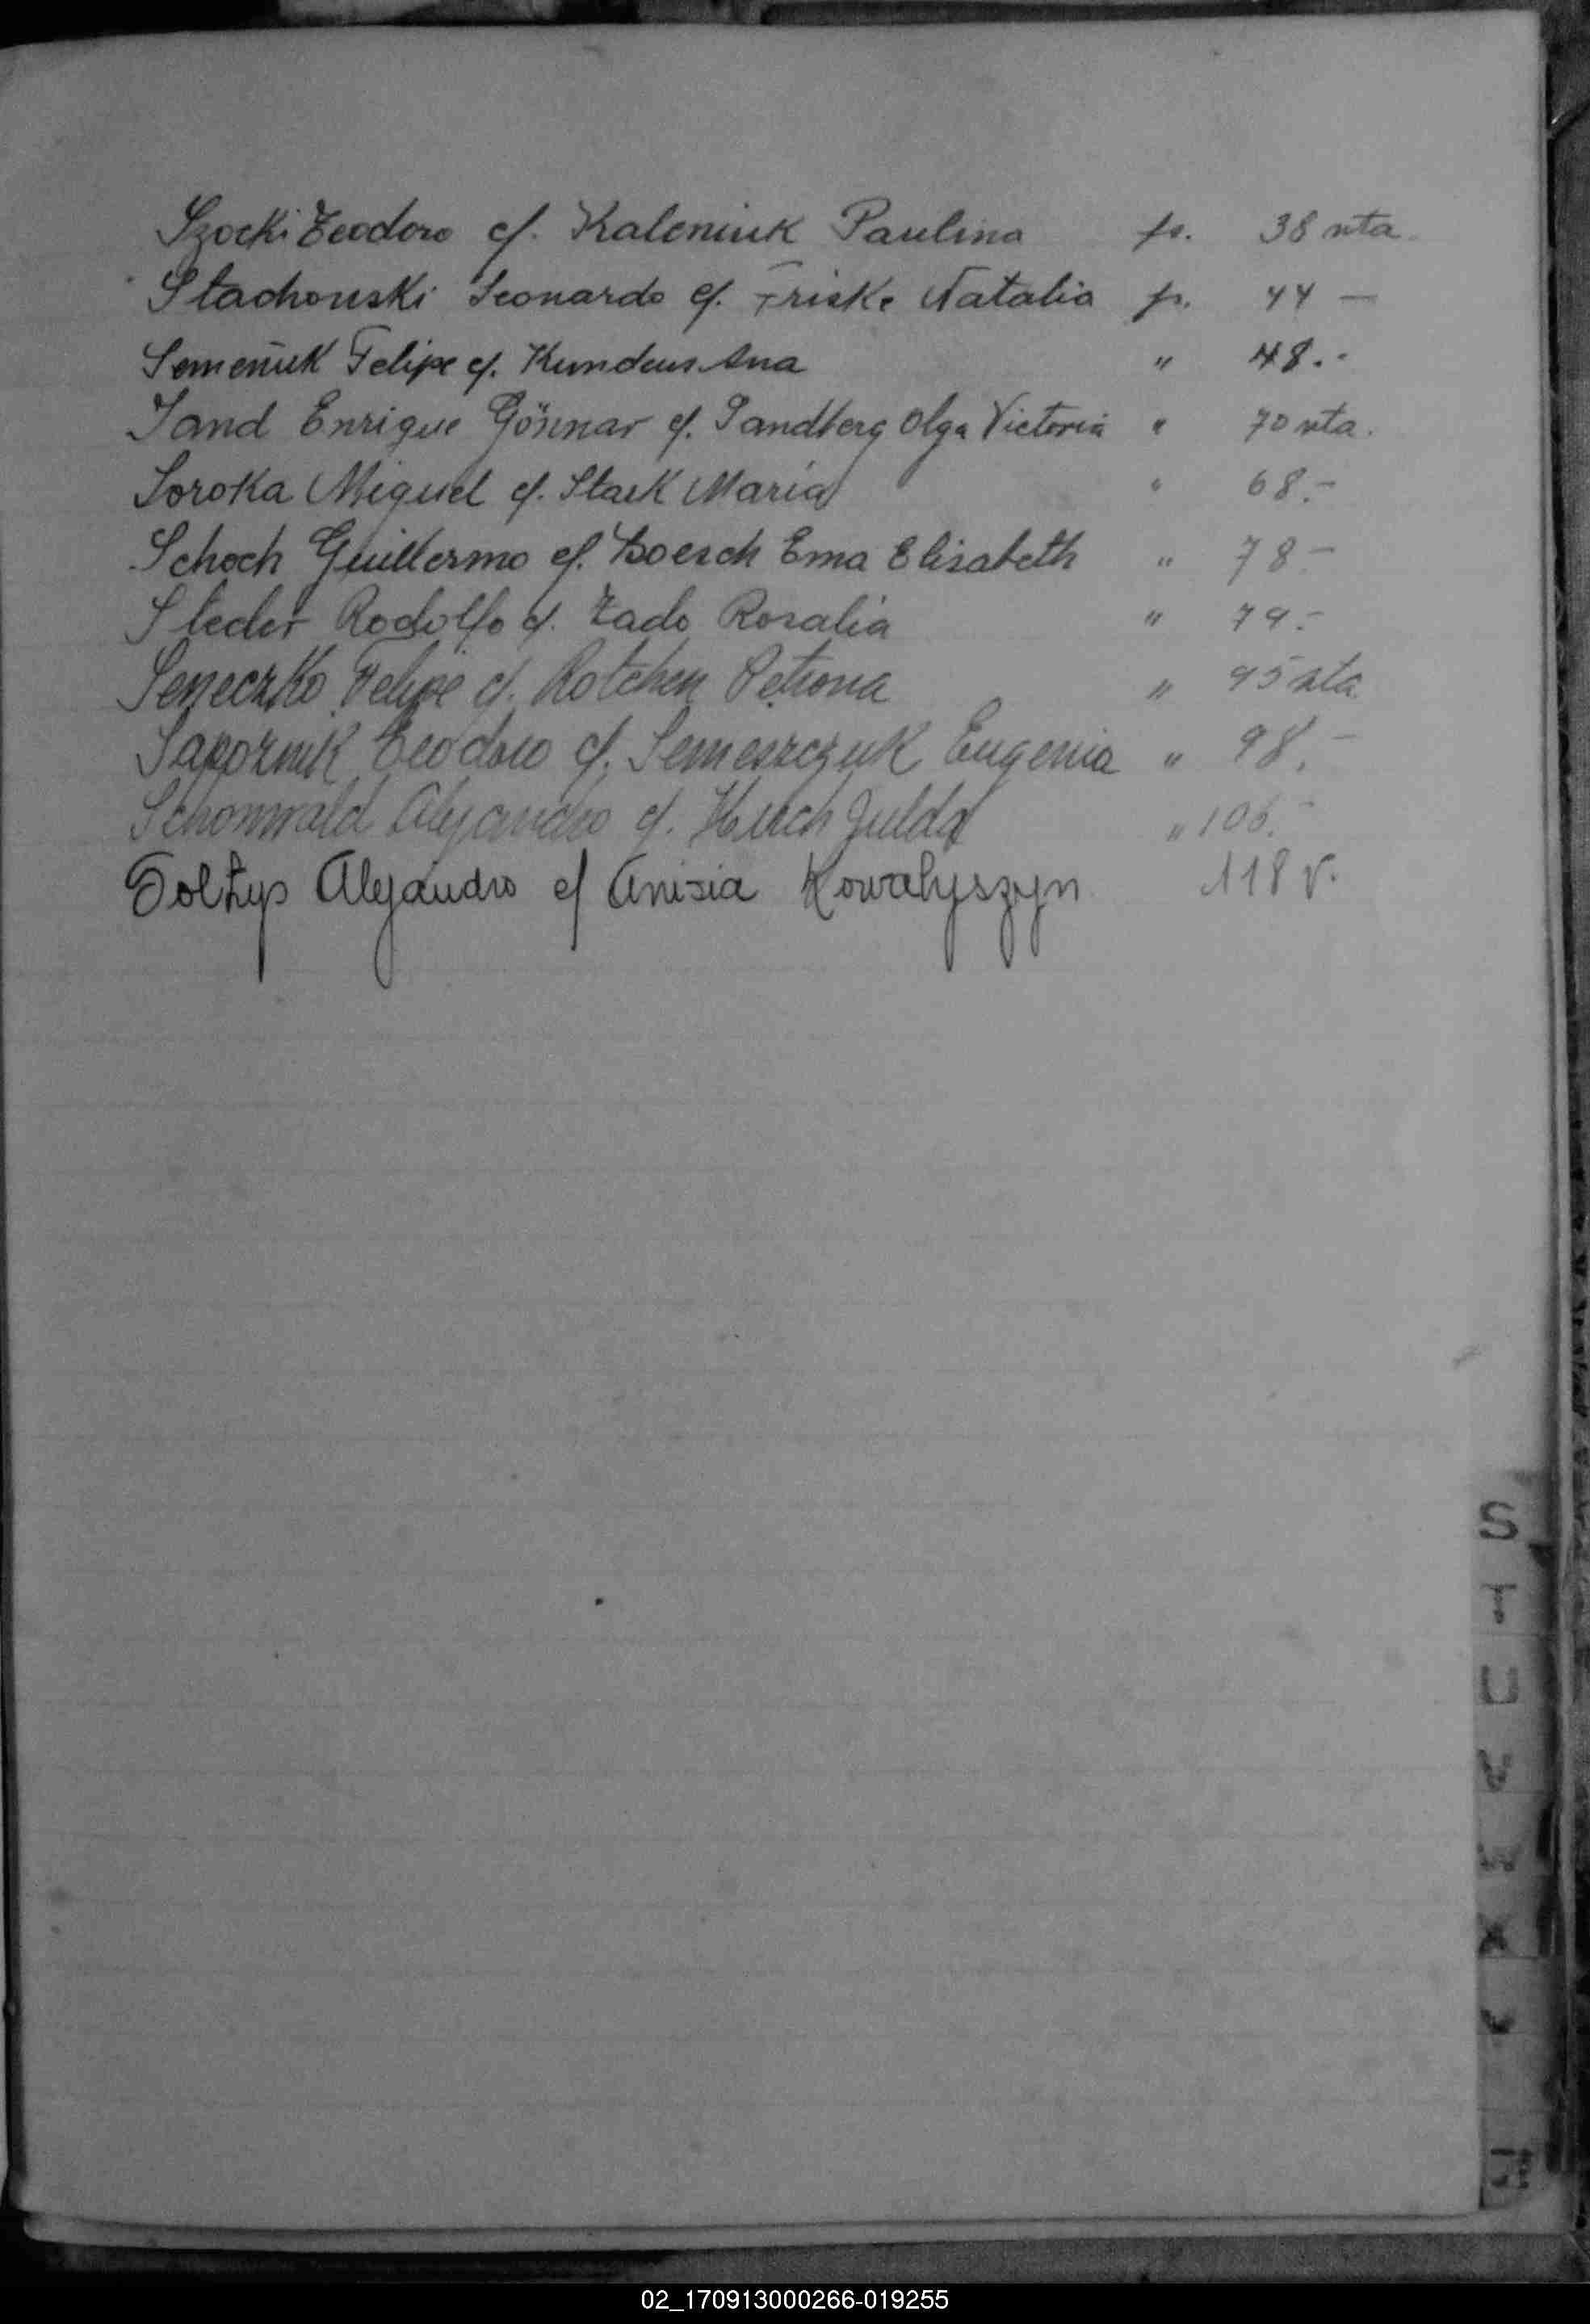 Szocki Teodoro c/. Kaleniuk Paulina fs. 38 vta.
Stachouski Leonardo c/. Friske Natalia fs. 44 —
Semeniuk Felipe c/. Kundeus Ana " 48.-
Sand Enrique Gönnar c/. Sandberg Olga Victoria " 70 vta.
Soroka Miguel c/. Stark Maria " 68.-
Schoch Guillermo c/. Boesch Ema Elisabeth " 78-
Steder Rodolfo c/. Zado Rosalia " 79.-
Seneczko Felipe c/. Rotchen Petrona " 95 vta.
Sapoznik Teodoro c/. Semeszczuk Eugenia " 98.-
Schonwald Alejandro c/. Hirch Julda " 106.-
Soltys Alejandro c/ Anisia Kowalyszyn 118 v.
S
T
U
V
W
X
Y
02_170913000266-019255